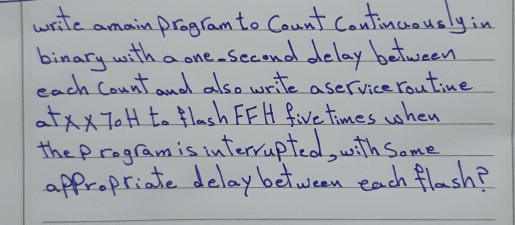 write a main program to Count Continuously in
binary with a one-second delay between
each Count and also write a service routine
at XX70H to flash FFH five times when
the Program is interrupted, with Some
appropriate delay between each flash?